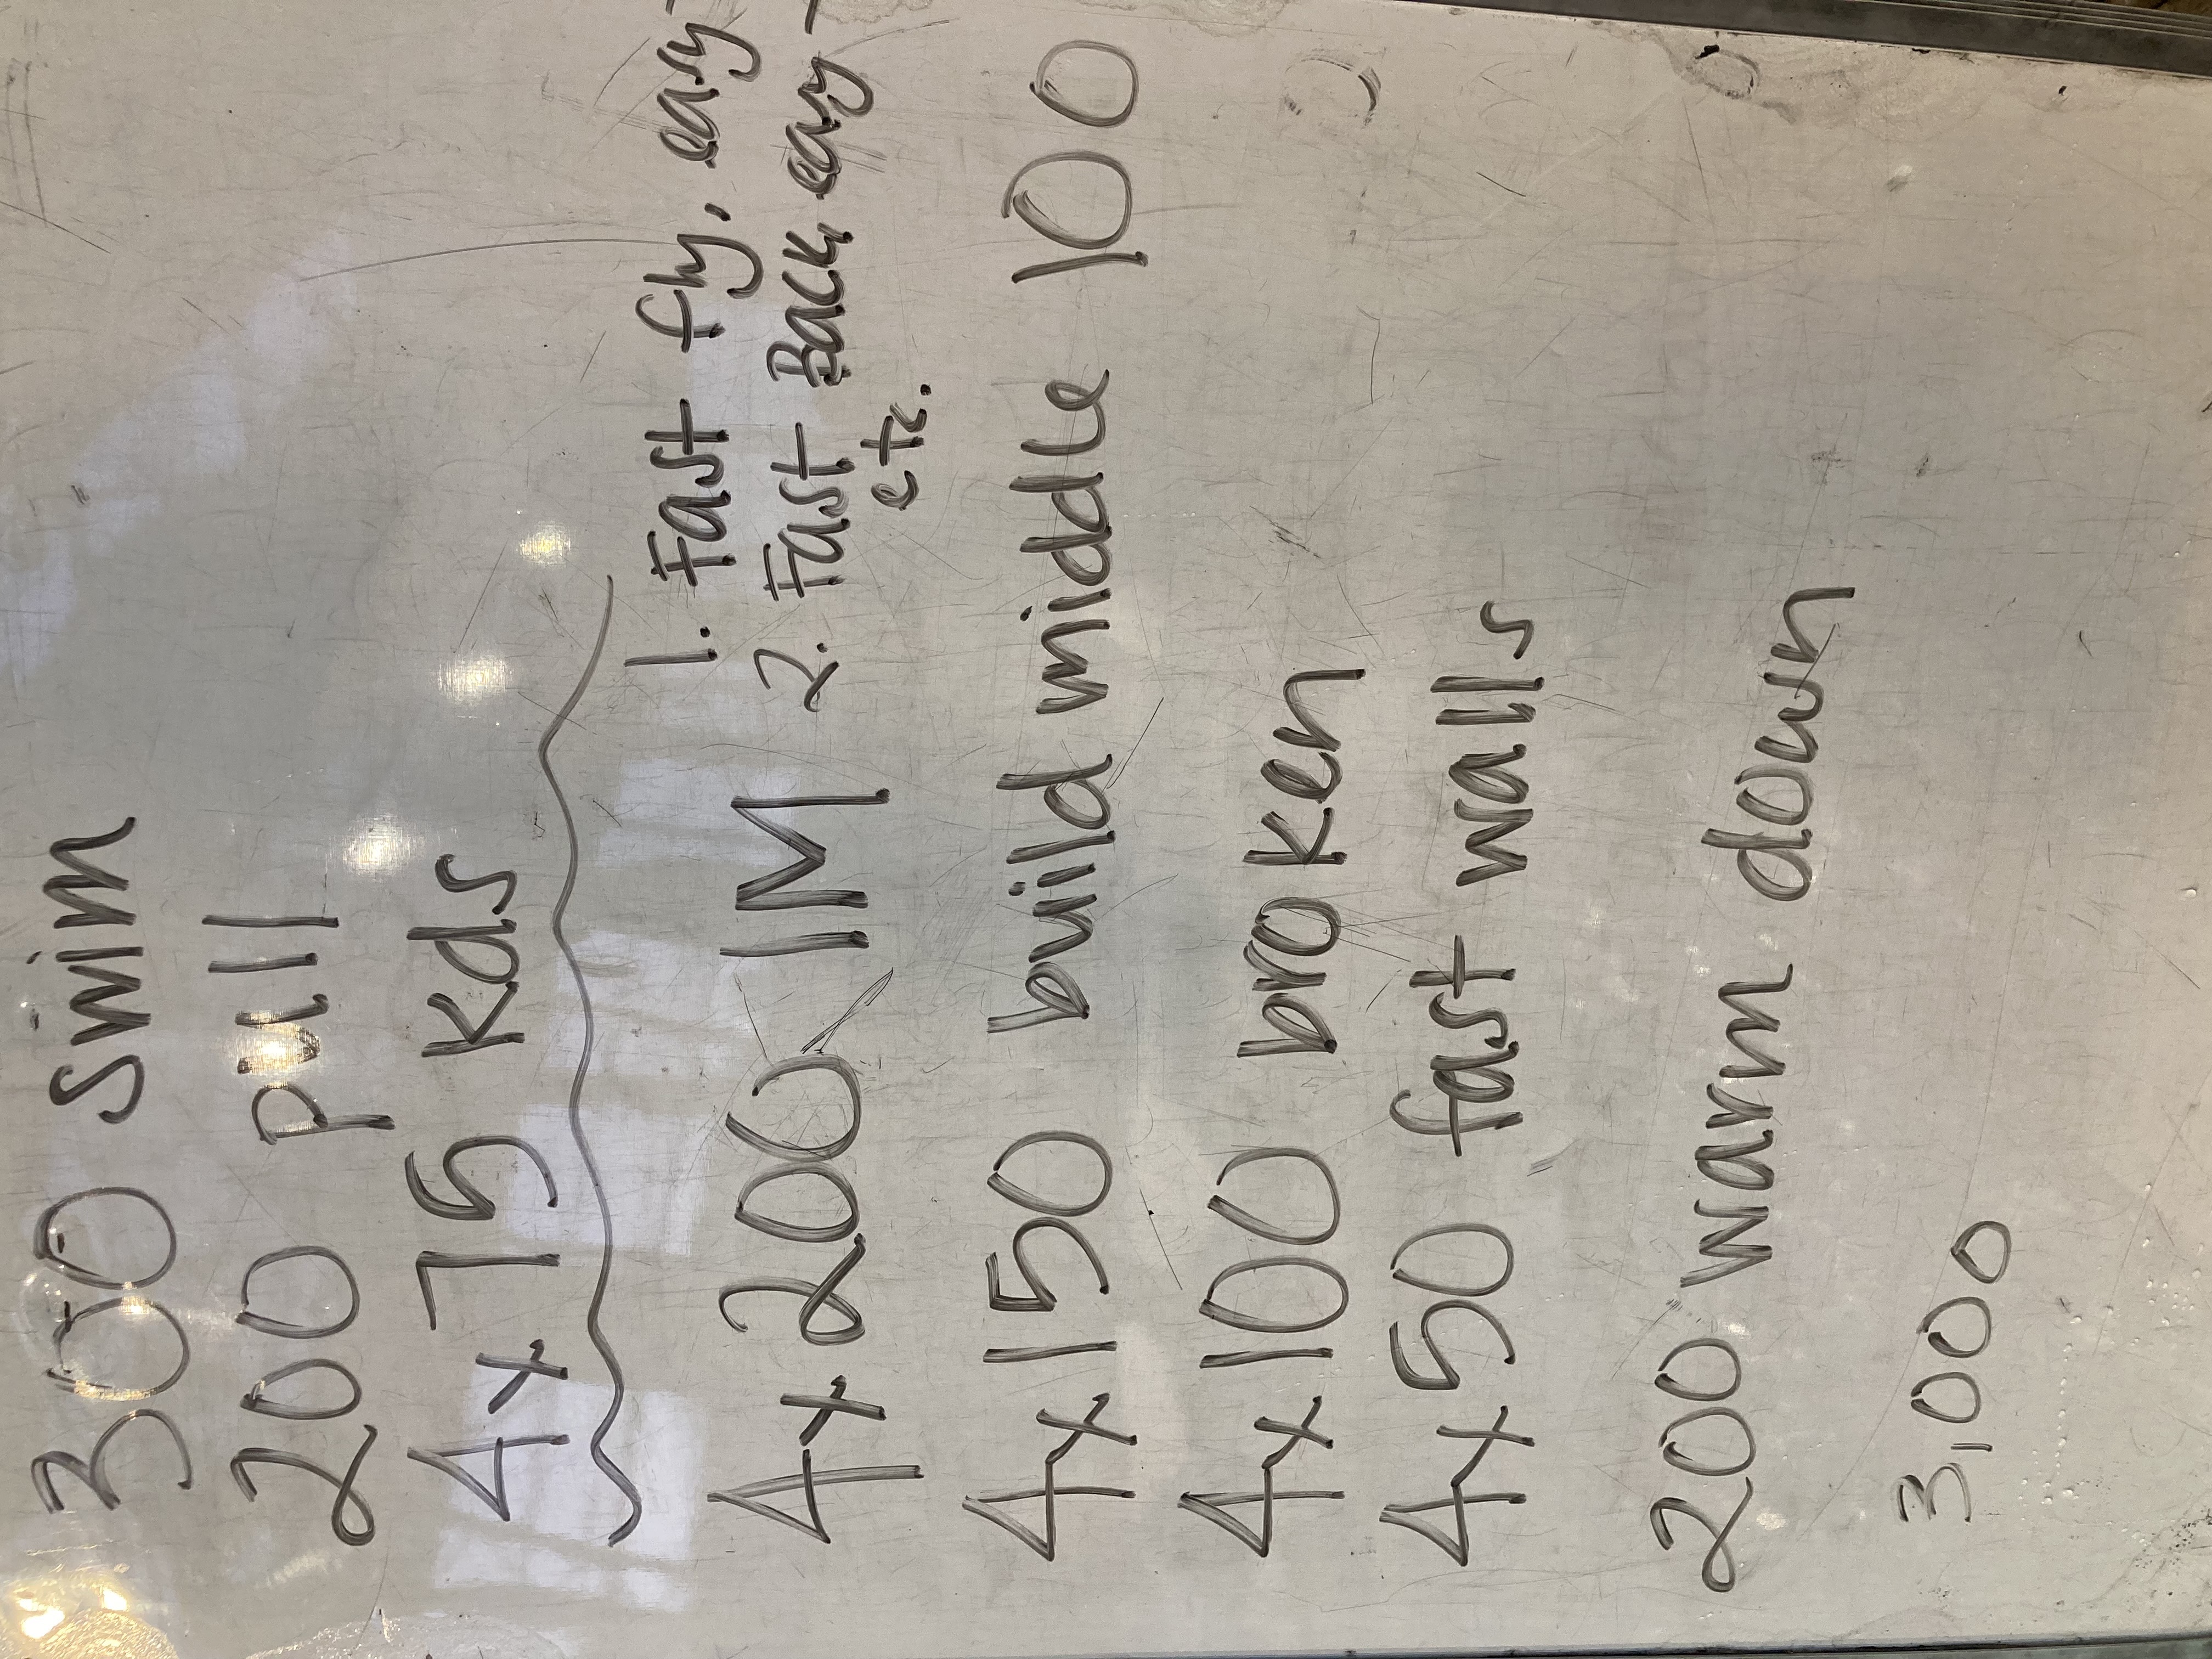 300 swim
200 pull
4x75 kds
1. Fast fly, easy
4x200 IM 2. Fast Back, easy
etc.
4x150 build middle 100
4x100 broken
4x50 fast walls
200 warm down
3,000